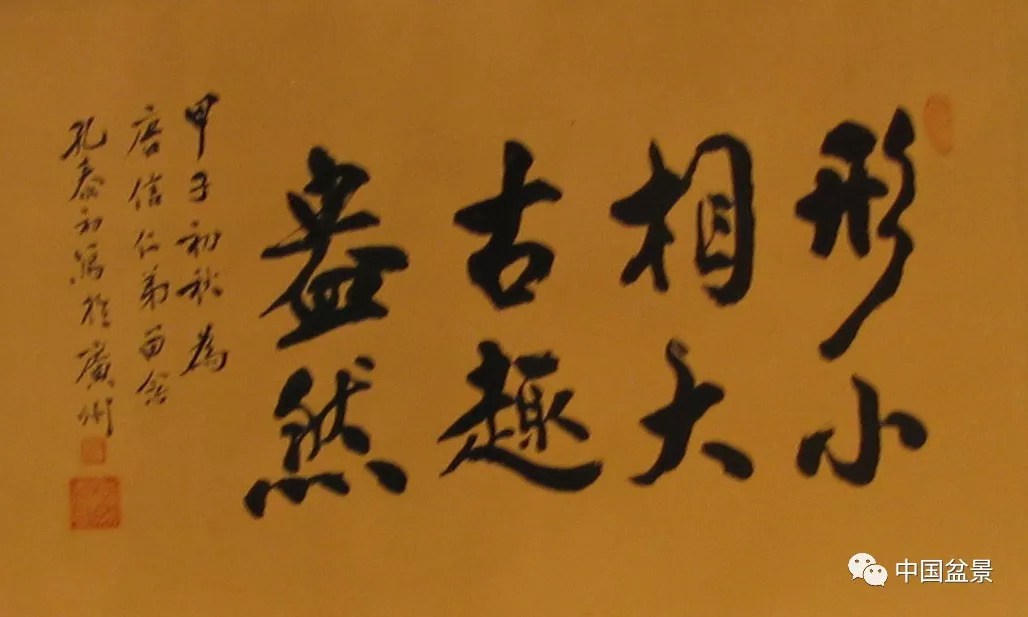 形小
相大
古趣
盎然
甲子初秋為
唐信仁弟留念
孔泰初寫於廣州
中国盆景